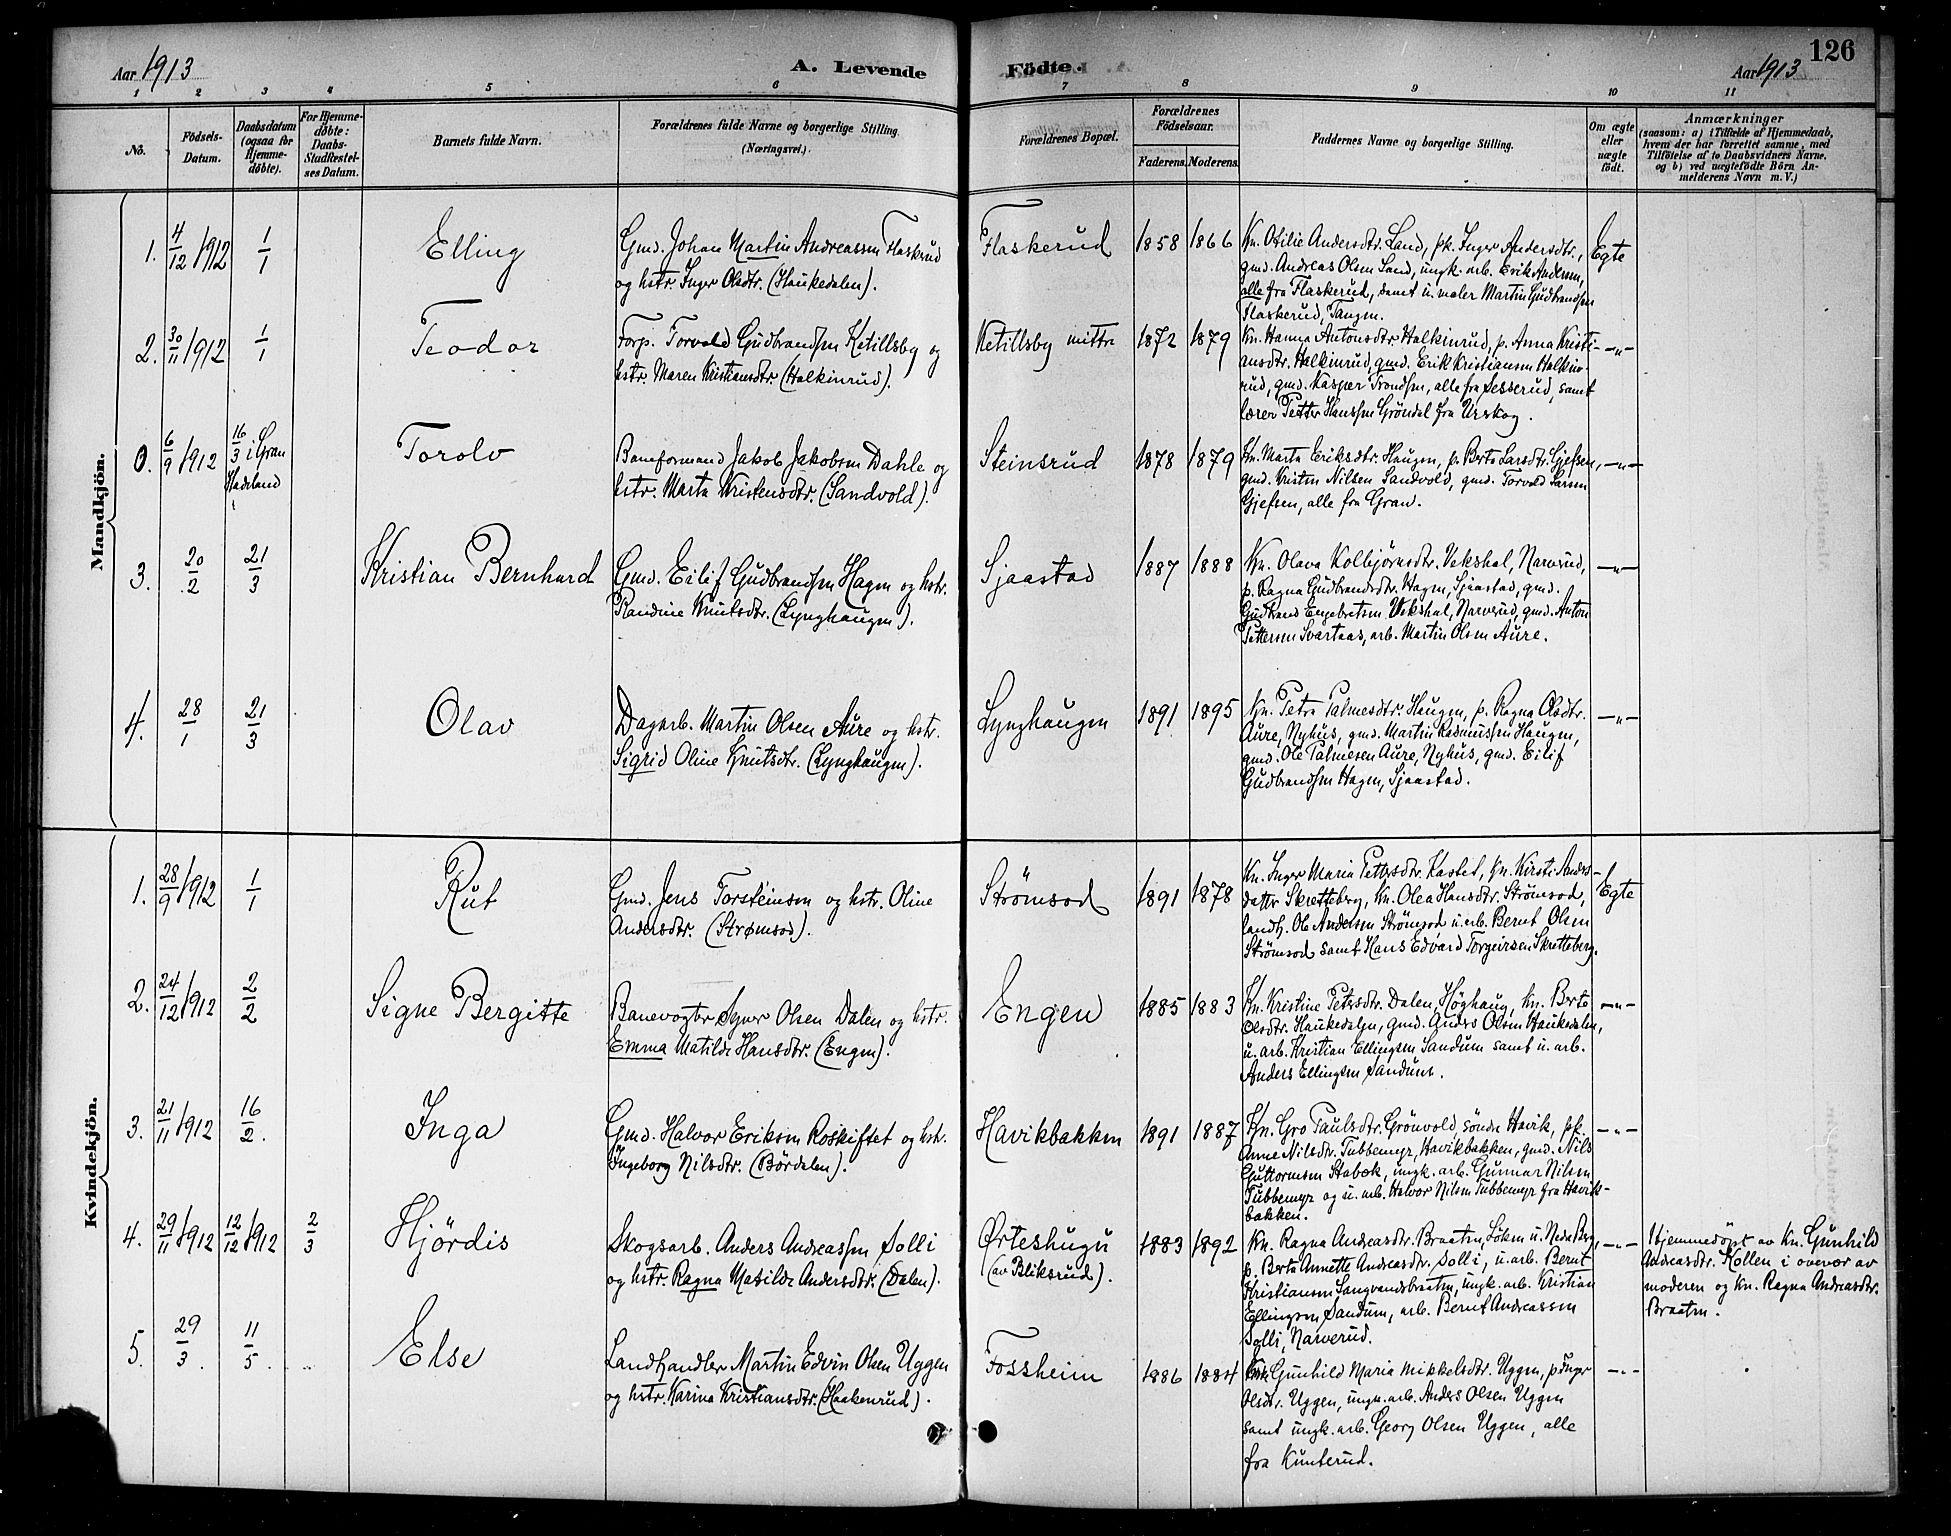 Aar 1913
A. Levende
Födte.
Aar 1913
126
1 2 3 4 5 6 7 8 9 10 11
No.
Födsels-
Datum.
Daabsdatum
(ogsaa for
Hjemme-
døbte).
For Hjemme-
døbte:
Daabs-
Stadfæstel-
ses Datum.
Barnets fulde Navn.
Forældrenes fulde Navne og borgerlige Stilling.
(Næringsvei.)
Forældrenes Bopæl.
Forældrenes
Födselsaar.
Faderens. Moderens.
Faddernes Navne og borgerlige Stilling.
Om ægte
eller
uægte
födt.
Anmærkninger
(saasom: a) i Tilfælde af Hjemmedaab,
hvem der har forrettet samme, med
Tilföielse af to Daabsvidners Navne.
og b) ved uægtefödte Börn An-
melderens Navn m. V.)
Mandkjön.
1. 4/12 1912 1/1 Elling
Gmd. Johan Martin Andreassen Flaskerud
og hstr. Inger Olsdtr. (Haukedalen).
Flaskerud 1858 1866
Kn. Otilie Andersdtr. Land, pk. Inger Andersdtr.,
gmd. Andreas Olsen Land, ungk. arb. Erik Andersen,
alle fra Flaskerud, samt u. maler Martin Gudbrandsen
Flaskerud, Tangen.
Egte
2. 30/11 1912 1/1 Teodor
Forp. Torvald Gudbrandsen Ketillsby og
hstr. Maren Kristiansdtr. (Halkinrud).
Ketillsby mittre 1872 1879
Kn. Hanna Antonsdtr. Halkinrud, p. Anna Kristi-
ansdtr. Halkinrud, gmd. Erik Kristiansen Halkin-
rud, gmd. Kasper Trondsen, alle fra Sesserud, samt
lærer Petter Hanssen Gröndal fra Urskog.
—"—
0. 6/9 1912 16/3 i Gran
Hadeland
Torolv
Baneformand Jakob Jakobsen Dahle og
hstr. Marta Kristensdtr. (Sandvold).
Steinsrud 1878 1879
Kn. Marta Eriksdtr. Haugen, p. Berte Larsdtr. Gjefsen,
gmd. Kristen Nilsen Sandvold, gmd. Torvald Larsen
Gjefsen, alle fra Gran.
—"—
3. 20/2 21/3 Kristian Bernhard
Gmd. Eilif Gudbrandsen Hagen og hstr.
Randine Knutsdtr. (Lynghaugen).
Sjaastad 1887 1888
Kn. Olava Kolbjørnsdtr. Vekshal, Narverud,
p. Ragna Gudbrandsdtr. Hagen, Sjaastad, gmd.
Gudbrand Engebretsen Vekshal, Narverud, gmd. Anton
Pettersen Svartaas, arb. Martin Olsen Aure.
—"—
4. 28/1 21/3 Olav
Dagarb. Martin Olsen Aure og hstr.
Sigrid Oline Knutsdtr. (Lynghaugen).
Lynghaugen 1891 1895
Kn. Petra Palmesdtr. Haugen, p. Ragna Olsdtr.
Aure, Nyhus, gmd. Martin Rasmussen Haugen,
gmd. Ole Palmesen Aure, Nyhus, gmd. Eilif
Gudbrandsen Hagen, Sjaastad.
—"—
Kvindekjön.
1. 28/9 1912 1/1 Rut
Gmd. Jens Torsteinsen og hstr. Oline
Andersdtr. (Strømsod).
Strömsod 1891 1878
Kn. Inger Maria Pettersdtr. Kastet, kn. Kirsti Anders-
datter Skretteberg, kn. Olea Hansdtr. Strömsod,
landh. Ole Andersen Strömsod u. arb. Bernt Olsen
Strömsod samt Hans Edvard Torgeirsen Skretteberg.
Egte
2. 24/12 1912 2/2 Signe Bergitte
Banevogter Syver Olsen Dalen og hstr.
Emma Matilde Hansdtr. (Engen).
Engen 1885 1883
Kn. Kristine Petersdtr. Dalen, Høghaug, kn. Berte
Olsdtr. Haukedalen, gmd. Anders Olsen Haukedalen,
u. arb. Kristian Ellingsen Sandum samt u. arb.
Anders Ellingsen Sandum.
—"—
3. 21/11 1912 16/2. Inga
Gmd. Halvor Eriksen Roskiftet og hstr.
Ingeborg Nilsdtr. (Bördalen).
Havikbakken 1891 1887
Kn. Gro Paulsdtr. Grönvold, söndre Havik, pk.
Anne Nilsdtr. Tubbemyr, Havikbakken, gmd. Nils
Guttormsen Stabæk, ungk. arb. Gunnar Nilsen
Tubbemyr og u. arb. Halvor Nilsen Tubbemyr fra Havik-
bakken.
—"—
4. 29/11 1912 12/12 1912 2/3 Hjördis
Skogsarb. Anders Andreassen Solli
og hstr. Ragna Matilde Andersdtr. (Dalen).
Ørteshugu
(av Bliksrud).
1883 1892
Kn. Ragna Andreasdtr. Braaten, Löken u. Nedre Berg,
p. Berte Annette Andreasdtr. Solli, u. arb. Bernt
Kristiansen Langvandsbraaten, ungk. arb. Kristian
Ellingsen Sandum, arb. Bernt Andreassen
Solli, Narverud.
—"—
Hjemmedöpt av kn. Gunhild
Andreasdtr. Kollen i overvær av
moderen og kn. Ragna Andreasdtr.
Braaten.
5. 29/3. 11/5. Else
Landhandler Martin Edvin Olsen Uggen
og hstr. Karine Kristiansdtr. (Haakenrud).
Fossheim 1886 1884
Kn. Gunhild Maria Mikkelsdtr. Uggen, p. Inger
Olsdtr. Uggen, ungk. arb. Anders Olsen Uggen
samt ungk. arb. Georg Olsen Uggen, alle
fra Kunterud.
—"—